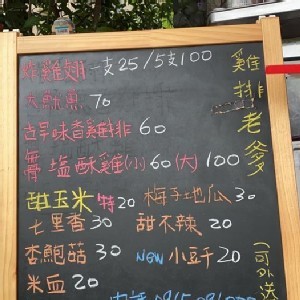 炸雞翅一支25/5支100
大魷魚70
古早味香雞排60
無骨塩酥雞(小)60(大)100
甜玉米特20 梅子地瓜30
七里香30 甜不辣20
杏鮑菇30 NEW小豆干20
米血20
電話0915091000
雞排老爹
(可外送